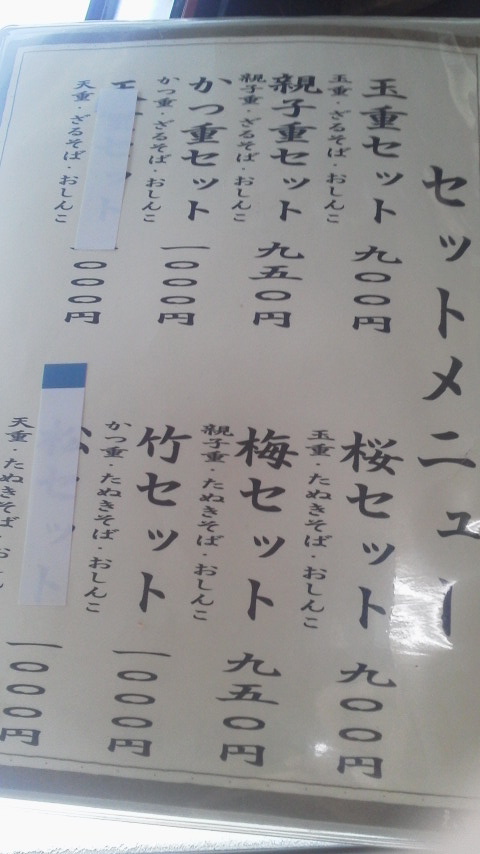 セットメニュー
玉重セット 九〇〇円
玉重・ざるそば・おしんこ
親子重セット 九五〇円
親子重・ざるそば・おしんこ
かつ重セット 一〇〇〇円
かつ重・ざるそば・おしんこ
一〇〇〇円
天重・ざるそば・おしんこ
桜セット 九〇〇円
玉重・たぬきそば・おしんこ
梅セット 九五〇円
親子重・たぬきそば・おしんこ
竹セット 一〇〇〇円
かつ重・たぬきそば・おしんこ
セット 一〇〇〇円
天重・たぬきそば・おし